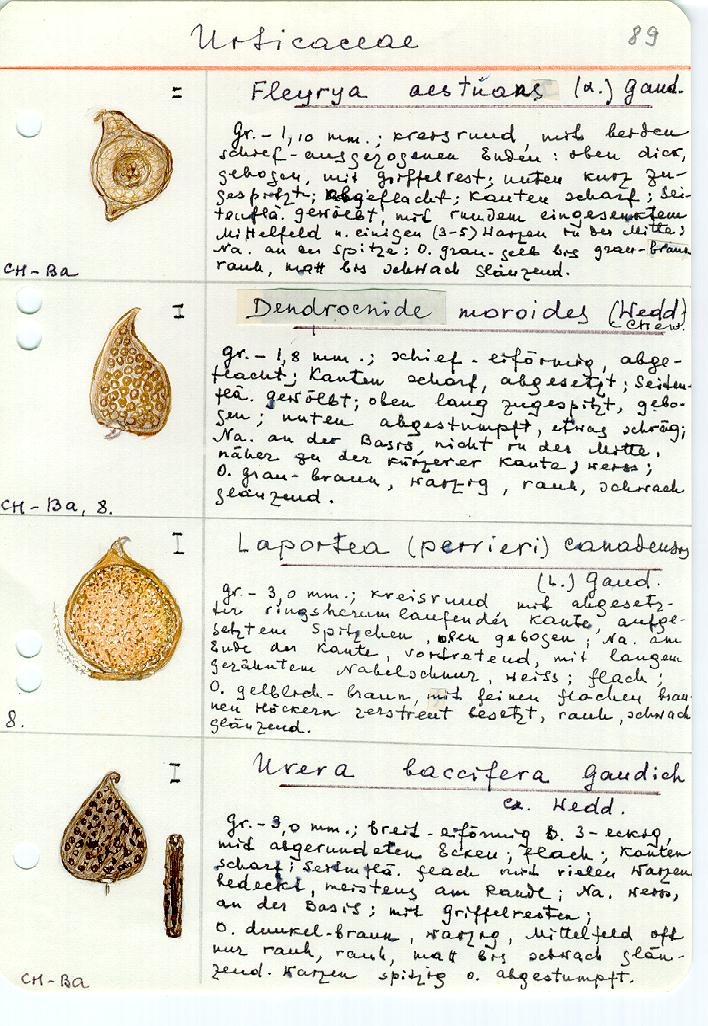 Urticaceae 89
Fleyrya aestuans (L.) Gaud.
gr. - 1,10 mm.; kreisrund, mit beiden
schief-ausgezogenen Enden: oben dick,
gebogen, mit Griffelrest; unten kurz zu-
gespitzt; abgeflacht; Kanten scharf; Sei-
tenflä. gewölbt, mit rundem eingesenktem
Mittelfeld u. einigen (3-5) Warzen in der Mitte;
Na. an der Spitze; O. grau-gelb bis grau-braun
rauh, matt bis schwach glänzend.
CH-Ba
Dendrocnide moroides (Wedd)
Chew.
gr. - 1,8 mm.; schief-eiförmig, abge-
flacht; Kanten scharf, abgesetzt; Seiten-
flä. gewölbt; oben lang zugespitzt, gebo-
gen; unten abgestumpft, etwas schräg;
Na. an der Basis, nicht in der Mitte,
näher zu der kürzerer Kante; weiss;
O. grau-braun, warzig, rauh, schwach
glänzend.
CH-Ba, 8.
Laportea (perrieri) canadensis
(L.) Gaud.
gr. - 3,0 mm.; kreisrund mit abgesetz-
ter ringsherumlaufender Kante, aufge-
setztem Spitzchen, oben gebogen; Na. am
Ende der Kante, vortretend, mit langem
gezähntem Nabelschnur, weiss; flach;
O. gelblich-braun, mit feinen flachen brau-
nen Höckern zerstreut besetzt, rauh, schwach
glänzend.
8.
Urera baccifera Gaudich
ex. Wedd.
gr. - 3,0 mm.; breit-eiförmig b. 3-eckig,
mit abgerundeten Ecken; flach; Kanten
scharf; Seitenflä. flach mit vielen Warzen
bedeckt, meistens am Rande; Na. weiss,
an der Basis; mit Griffelresten;
O. dunkel-braun, warzig, Mittelfeld oft
nur rauh, rauh, matt bis schwach glän-
zend. Warzen spitzig o. abgestumpft.
CH-Ba